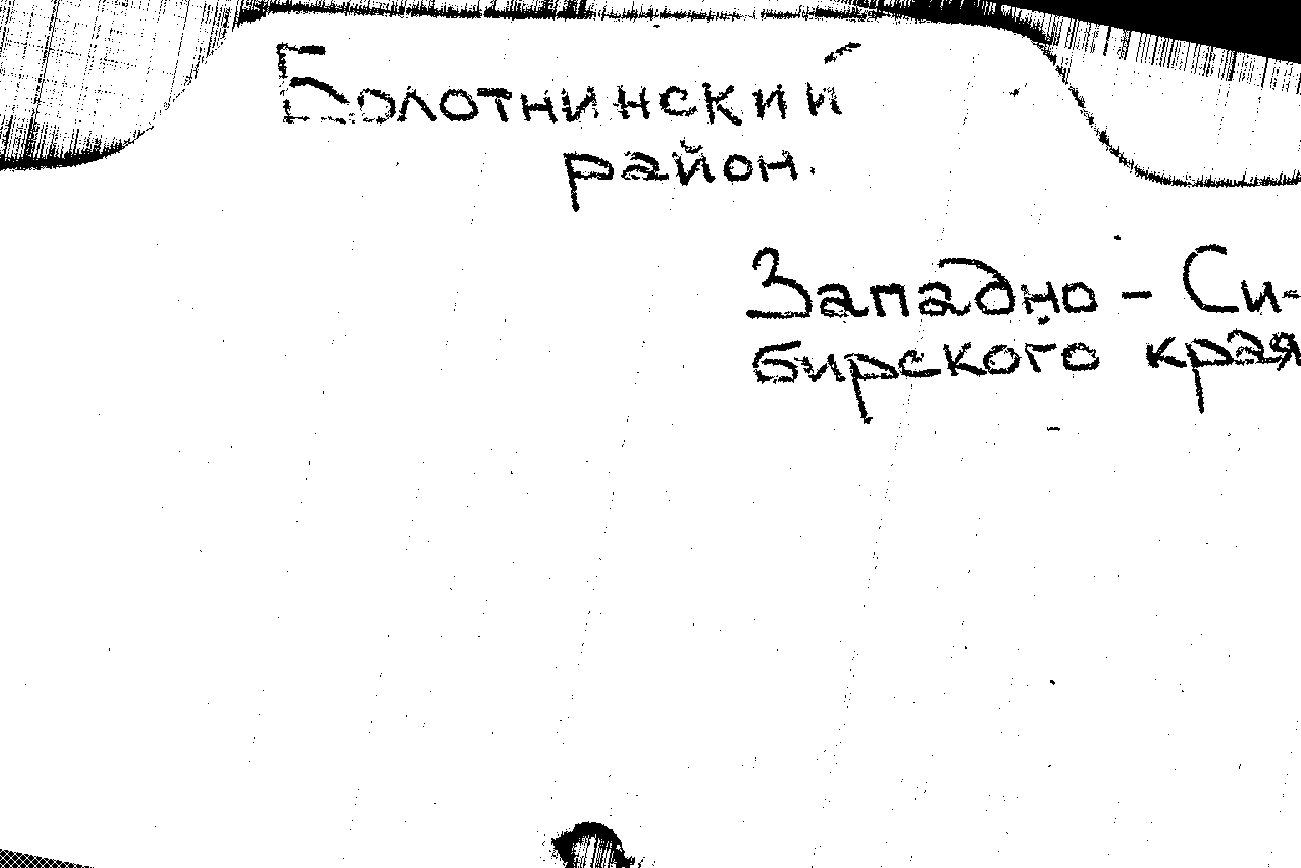 Болотнинский
район.
Западно - Си-
бирского края